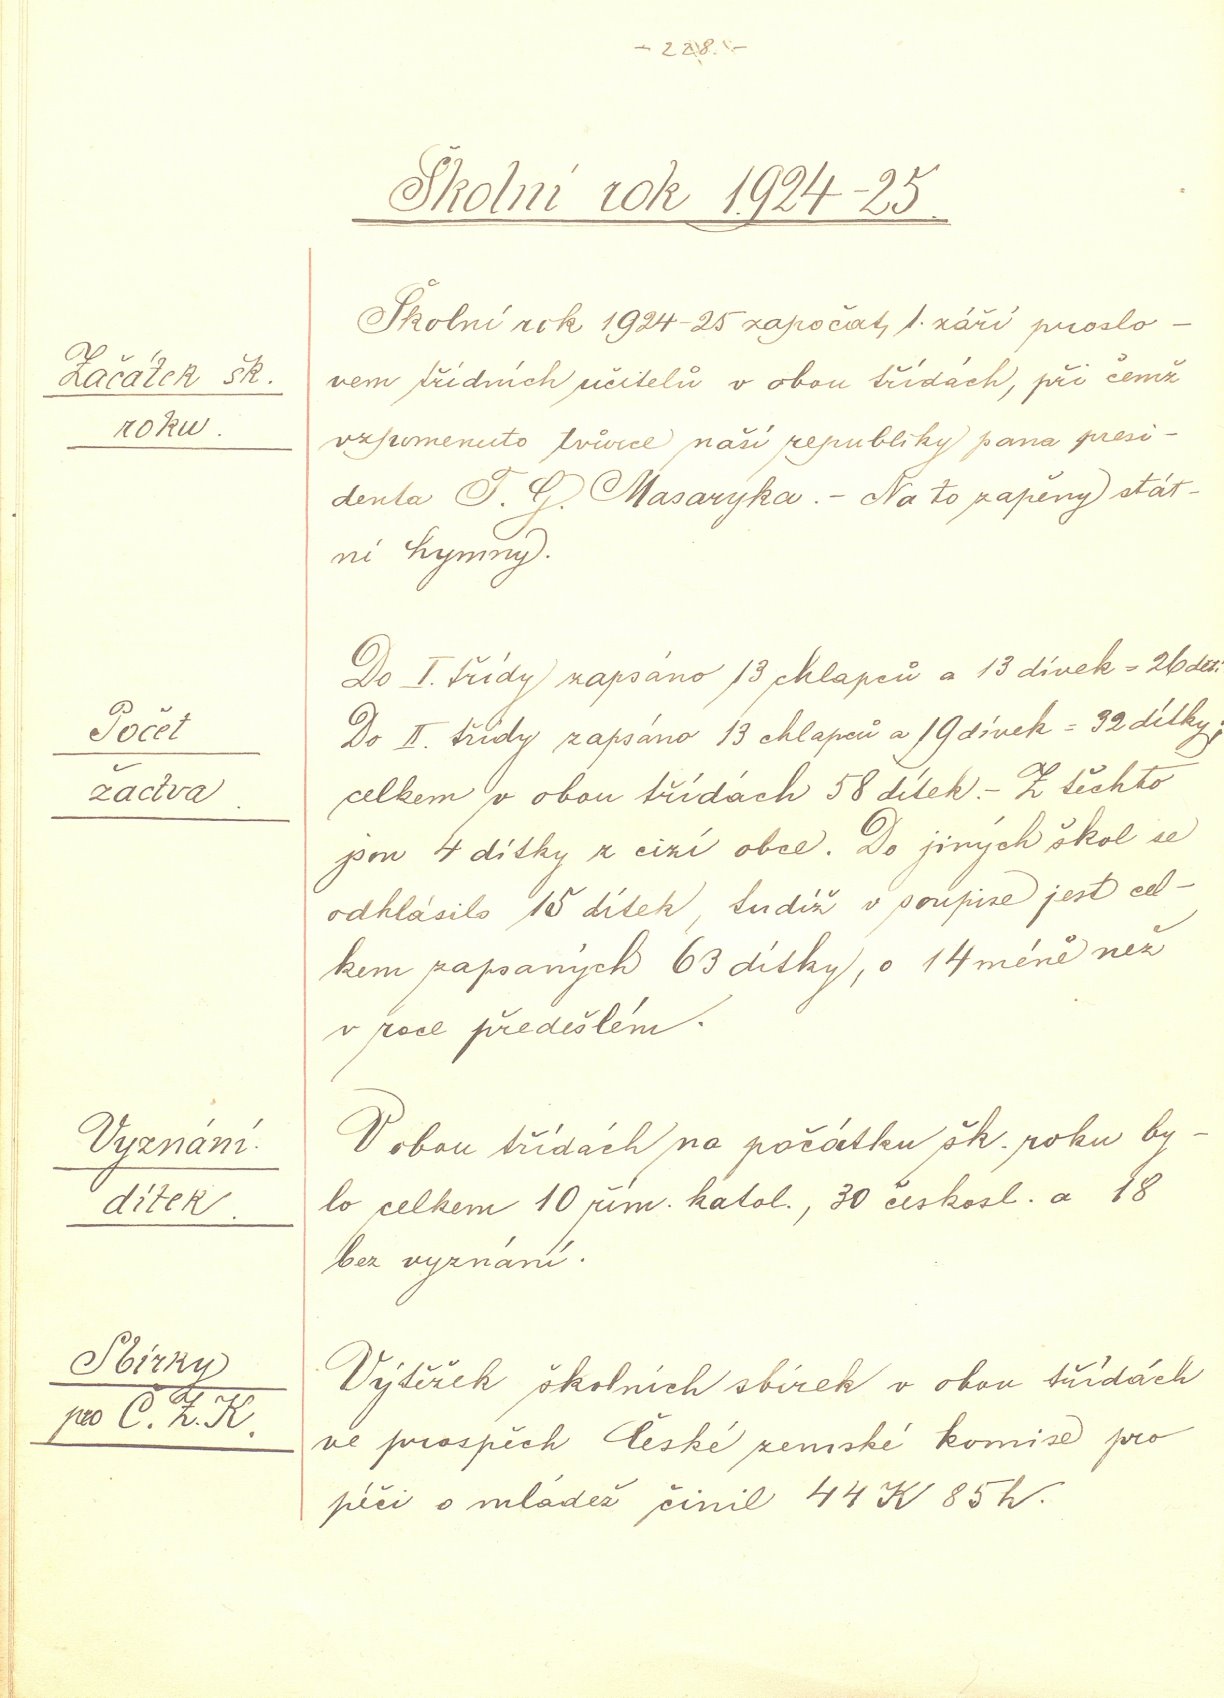 - 228. -
Školní rok 1924-25.
Začátek šk.
roku.
Školní rok 1924-25 započat, 1. září proslo-
vem třídních učitelů v obou třídách, při čemž
vzpomenuto tvůrce naší republiky pana presi-
denta T. G. Masaryka. - Na to zapěny stát-
ní hymny.
Počet
žactva.
Do I. třídy zapsáno 13 chlapců a 13 dívek = 26 dětí
Do II. třídy zapsáno 13 chlapců a 19 dívek = 32 dítky;
celkem v obou třídách 58 dítek. - Z těchto
jsou 4 dítky z cizí obce. Do jiných škol se
odhlásilo 15 dítek, tudíž v soupise jest cel-
kem zapsaných 63 dítky, o 14 méně než
v roce předešlém.
Vyznání
dítek.
V obou třídách na počátku šk. roku by-
lo celkem 10 řím. katol., 30 českosl. a 18
bez vyznání.
Sbírky
pro Č. Z. K.
Výtěžek školních sbírek v obou třídách
ve prospěch České zemské komise pro
péči o mládež činil 44 K 85 h.